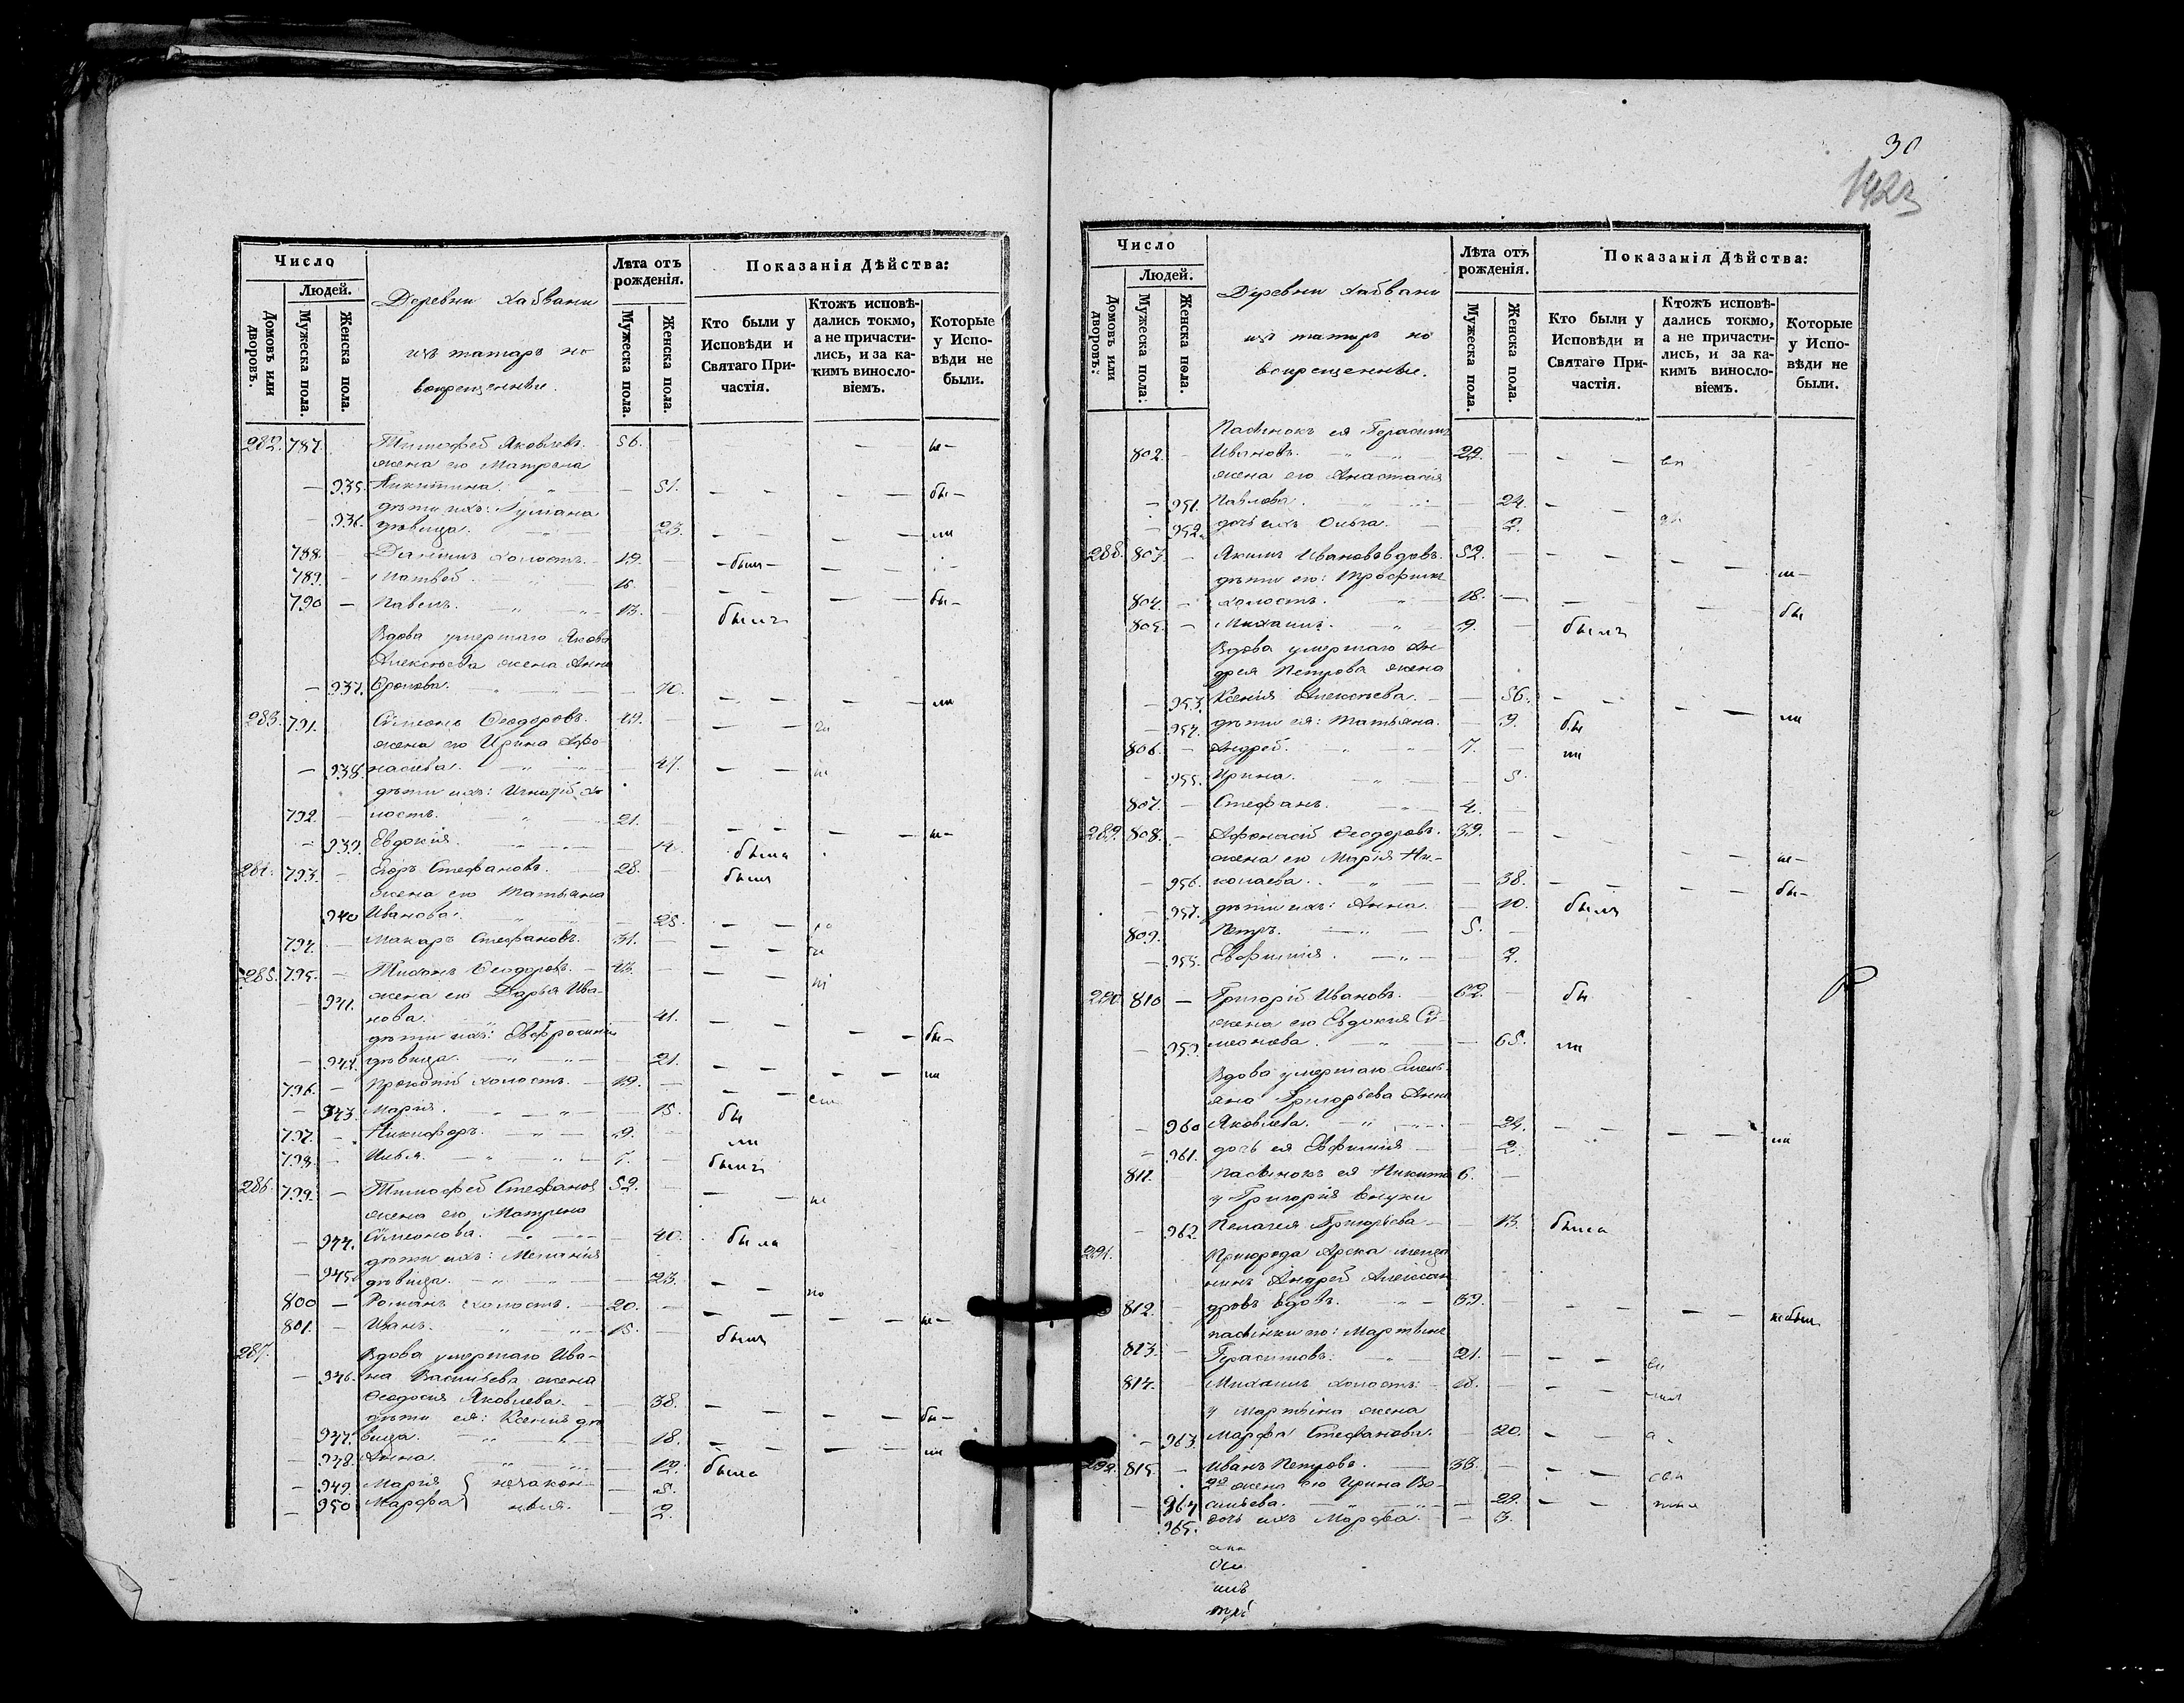 30
1423
Число
Людей.
Домовъ или дворовъ.
Мужеска пола.
Женска пола.
Деревни
изъ татаръ но
вокрещенные.
Лѣта отъ рожденія.
Мужеска пола.
Женска пола.
Показанія Дѣйства:
Кто были у Исповѣди и Святаго Причастія.
Ктожъ исповѣдались токмо, а не причастились, и за какимъ винословіемъ.
Которые у Исповѣди не были.
282. 787. Тимофей Яковлевъ. 56. не
жена его Матрена
935. Никитина. 51. бы
дѣти ихъ:
936. дѣвица. 23. ли
788. холостъ. 19. былъ
789. Матвей 16.
790 Павелъ. 13. былъ бы
Вдова умершаго Якова
Алексѣева жена Анна
937. 70. ли
283. 791. Симеонъ Ѳеодоровъ. 49.
жена его Ирина Афо-
938. насіева. 47.
дѣти ихъ: Игнатій хо
792. лостъ. 21. не
939. Евдокія. 14. была
284. 793. Егоръ Стефановъ. 28. былъ
жена его Татьяна
940 Иванова. 25.
794. Макаръ Стефановъ. 31.
285. 795. Тихонъ Ѳеодоровъ. 43.
941. жена его Дарья Ива-
нова. 41.
дѣти ихъ: Евфросинія бы
942. дѣвица. 21. ли
796. Прокопій холостъ. 19.
943. Марія. 15. бы
797. Никифоръ. 9. ли
798. Илья. 7. былъ
286. 799. Тимофей Стефановъ 52. не
жена его Матрена
944. Симеонова. 40. была
дѣти ихъ: Меланія
945. дѣвица. 23.
800 Романъ холостъ. 20. не
801. Иванъ. 15. былъ
287. Вдова умершаго Ива-
946. на Васильева жена
Ѳеодосія Яковлева. 38.
дѣти ея: Ксенія дѣ бы
947. вица. 18. ли
948. Анна. 12. была
949. Марія незакон- 5.
950 Марфа ныя. 2.
Число
Людей.
Домовъ или дворовъ.
Мужеска пола.
Женска пола.
Деревни
изъ татаръ но
вокрещенные.
Лѣта отъ рожденія.
Мужеска пола.
Женска пола.
Показанія Дѣйства:
Кто были у Исповѣди и Святаго Причастія.
Ктожъ исповѣдались токмо, а не причастились, и за какимъ винословіемъ.
Которые у Исповѣди не были.
Пасынокъ ея Герасимъ
802. Ивановъ. 29.
жена его Анастасія
951. Павлова. 24.
952. дочь ихъ Ольга. 2.
288. 803. Якимъ Ивановъ вдовъ. 52.
дѣти его: Трофимъ
804. холостъ. 18. бы
805. Михаилъ. 9. былъ
Вдова умершаго Ан-
дрея Петрова жена
953. Ксенія Алексѣева. 56. ли
954. дѣти ея: Татьяна. 9. бы
806. Андрей. 7. ли
955. Ирина. 5.
807. Стефанъ. 4.
289. 808. Афонасій Ѳеодоровъ. 39. не
жена его Марія Ни-
956. колаева. 38. бы
957. дѣти ихъ: Анна. 10. былъ
809. Петръ. 5.
958. Евфимія. 2.
290. 810 Григорій Ивановъ. 62. бы
жена его Евдокия Си-
959. меонова. 65. ли
Вдова умершаго Емель-
яна Григорьева Анна
960 Яковлева. 24. ли
961. дочь ея Евфимія 2.
811. Пасынокъ ея Никита 6.
у Григорія внуки
962 Пелагея Григорьева 13. была
291. Пригорода Арска меща
нинъ Андрей Алексан
812. дровъ вдовъ. 39. не был
пасынки его: Мартынъ
813. Герасимовъ. 21.
814. Михаилъ холостъ. 18.
у Мартына жена
963. Марфа Стефанова. 20.
292. 815. Иванъ Петровъ. 38.
2я жена его Ирина Ва-
964 сильева. 29.
965. дочь ихъ Марфа. 3.